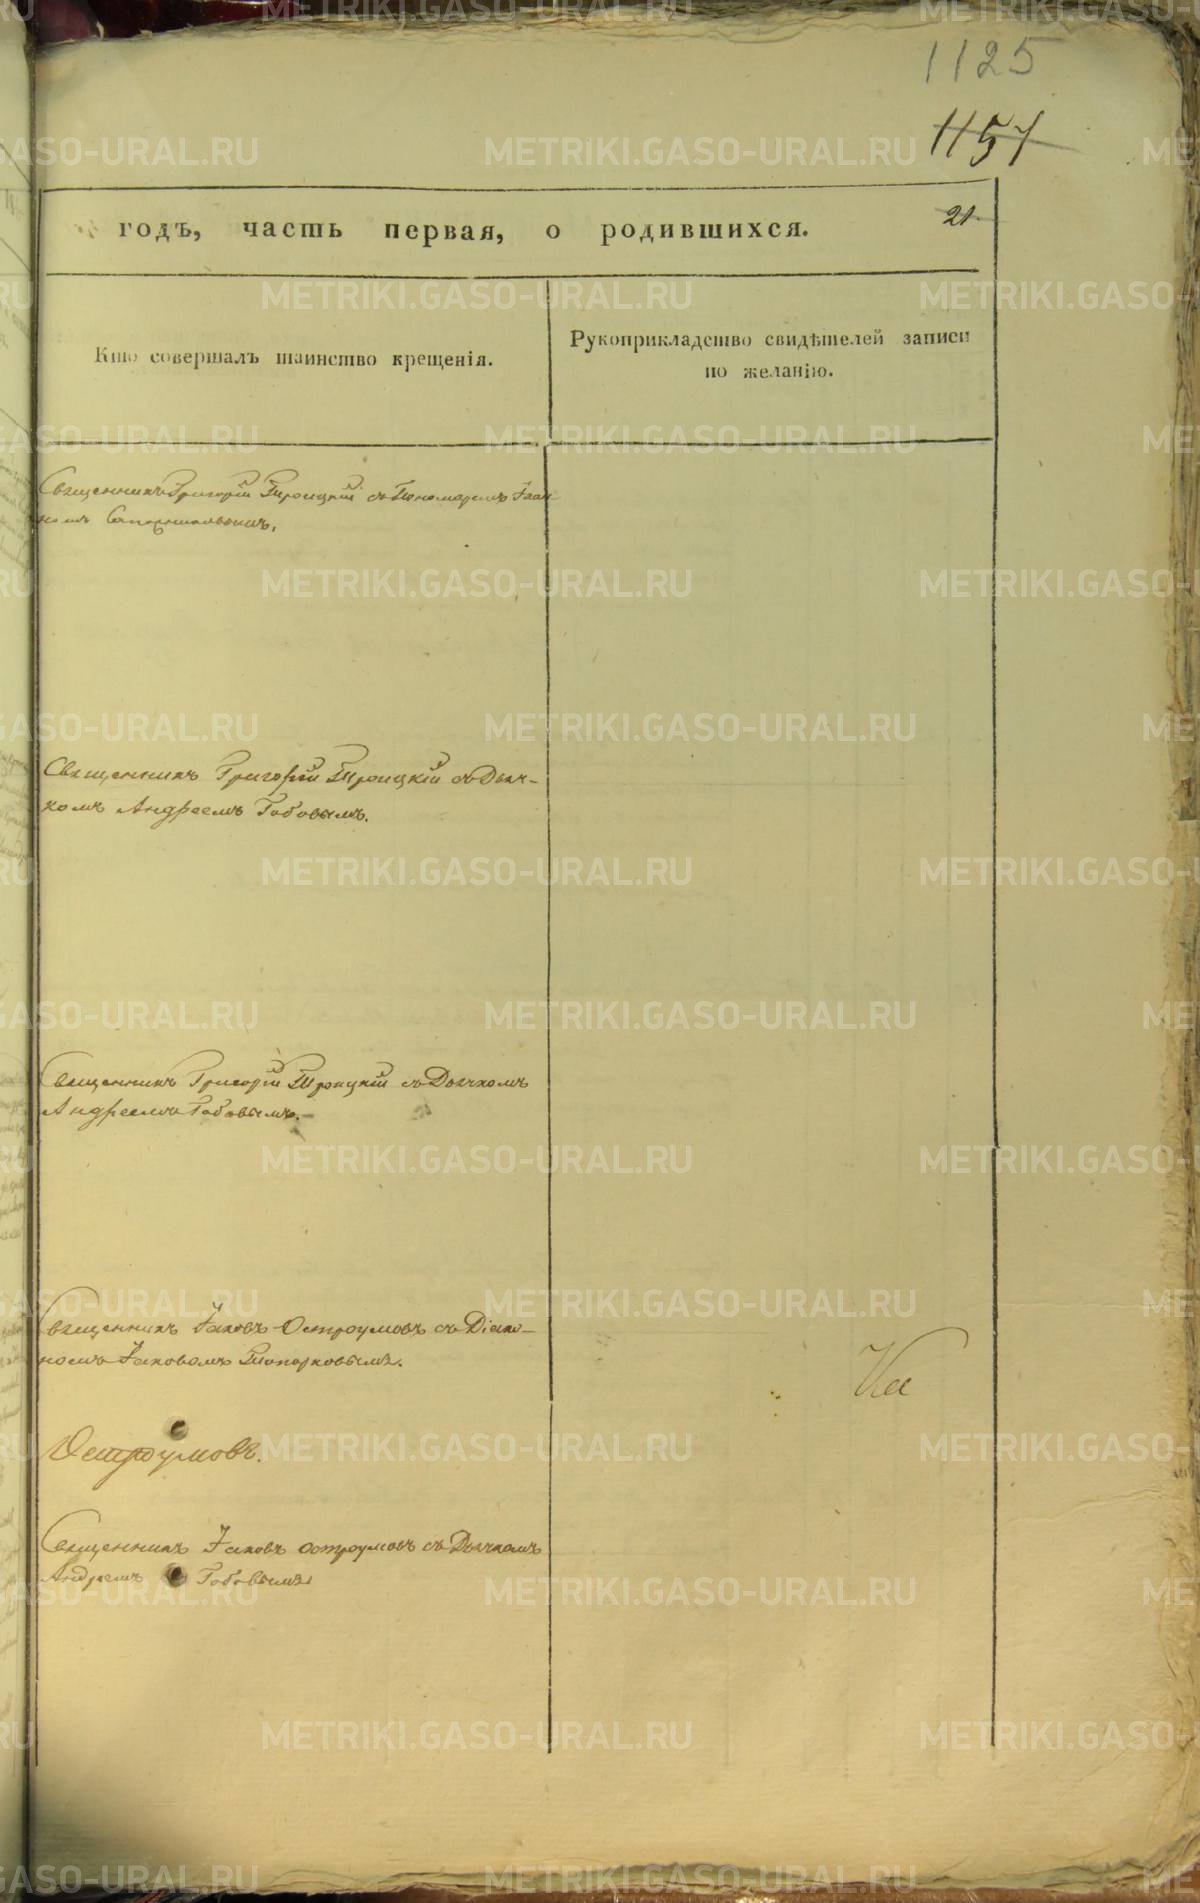 1125
1157
годъ, часть первая, о родившихся.
21
Кто совершалъ таинство крещенія.
Рукоприкладство свидѣтелей записи
по желанію.
Священникъ Григорій Троицкій съ Пономаремъ Іаан
номъ
Священникъ Григорій Троицкій съ Дьяч-
комъ Андреемъ Габовымъ.
Священникъ Григорій Троицкій съ Дьячкомъ
Андреемъ Габовымъ.
Священникъ Іаковъ Остроумовъ съ Діако-
номъ Іаковомъ Топорковымъ.
Остроумовъ.
Священникъ Іаковъ Остроумовъ съ Дьячкомъ
Андреемъ Габовымъ
METRIKI.GASO-URAL.RU